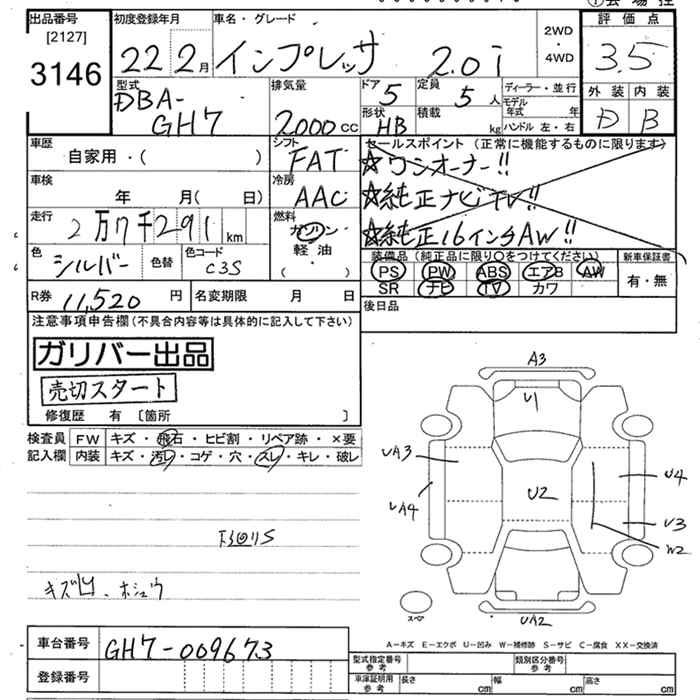 出品番号 初度登録年月 車名・グレード 評価点
[2127] 22 2月 インプレッサ 2.0i 2WD・4WD 3.5
3146
型式 排気量 ドア 定員 ディーラー・並行 外装 内装
DBA-GH7 2000cc 5 5人 モデル年式 年 D B
形状 HB 積載 kg ハンドル 左・右
車歴 シフト セールスポイント (正常に機能するものに限ります)
自家用・( ) FAT ☆ワンオーナー!!
車検 年 月( 日) 冷房 AAC ☆純正ナビTV!!
走行 2万7千291km 燃料 ガソリン・軽油・( ) ☆純正16インチAW!!
色 シルバー 色替 色コード C3S 装備品 (純正品に限り○をつけてください) 新車保証書
PS PW ABS エアB AW 有・無
R券 11,520円 名変期限 月 日 SR ナビ TV カワ
注意事項申告欄(不具合内容等は具体的に記入して下さい) 後日品
ガリバー出品
売切スタート
修復歴 有 〔箇所 〕
検査員 FW キズ・飛石・ヒビ割・リペア跡・×要
記入欄 内装 キズ・汚レ・コゲ・穴・スレ・キレ・破レ
A3
U1
UA3 U4
U2
UA4 U3
W2
キズ凹、ホシュウ
スペア
UA2
A=キズ E=エクボ U=凹み W=補修跡 S=サビ C=腐食 XX=交換済
車台番号 GH7-009673
型式指定番号 参考 類別区分番号 参考
登録番号 車庫証明用 参考 長さ cm 幅 cm 高さ cm